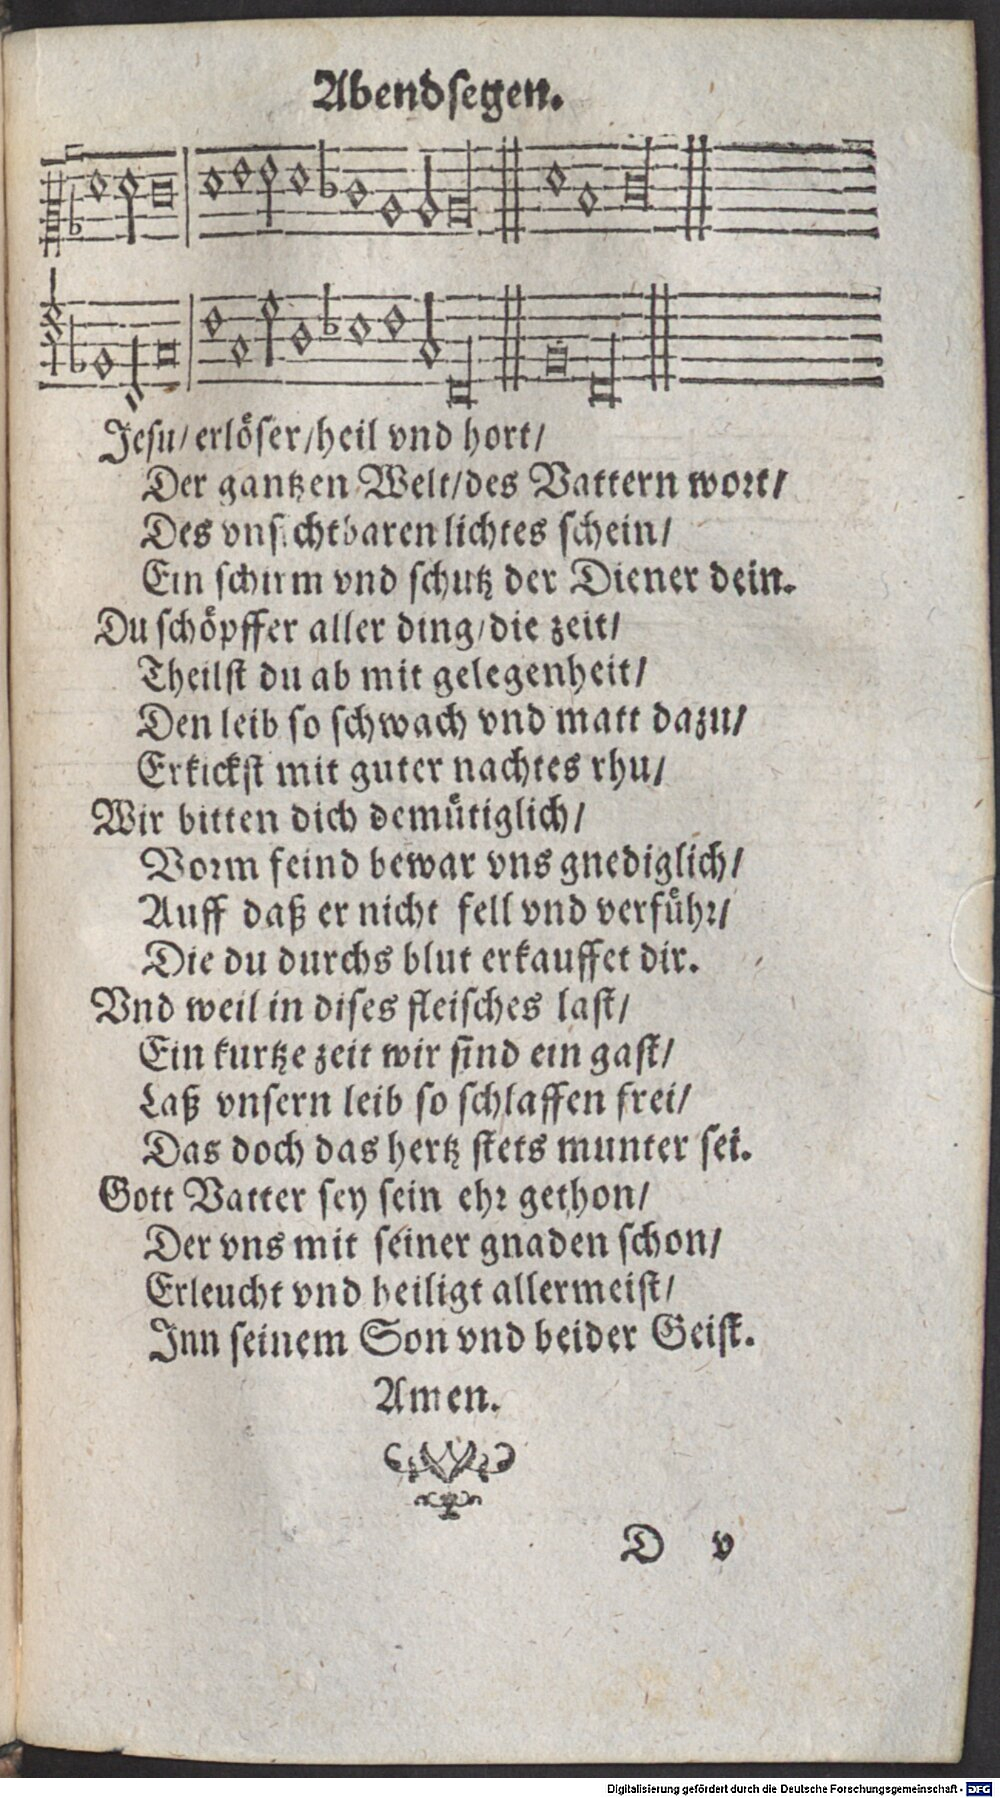 Abendsegen.
Jesu/ erlöser/ heil vnd hort/
Der gantzen Welt/ des Vattern wort/
Des vnsichtbaren lichtes schein/
Ein schirm vnd schutz der Diener dein.
Du schöpffer aller ding/ die zeit/
Theilst du ab mit gelegenheit/
Den leib so schwach vnd matt dazu/
Erkickst mit guter nachtes rhu/
Wir bitten dich demütiglich/
Vorm feind bewar vns gnediglich/
Auff daß er nicht fell vnd verführ/
Die du durchs blut erkauffet dir.
Vnd weil in dises fleisches last/
Ein kurtze zeit wir sind ein gast/
Laß vnsern leib so schlaffen frei/
Das doch das hertz stets munter sei.
Gott Vatter sey sein ehr gethon/
Der vns mit seiner gnaden schon/
Erleucht vnd heiligt allermeist/
Inn seinem Son vnd beider Geist.
Amen.
D v
Digitalisierung gefördert durch die Deutsche Forschungsgemeinschaft - DFG